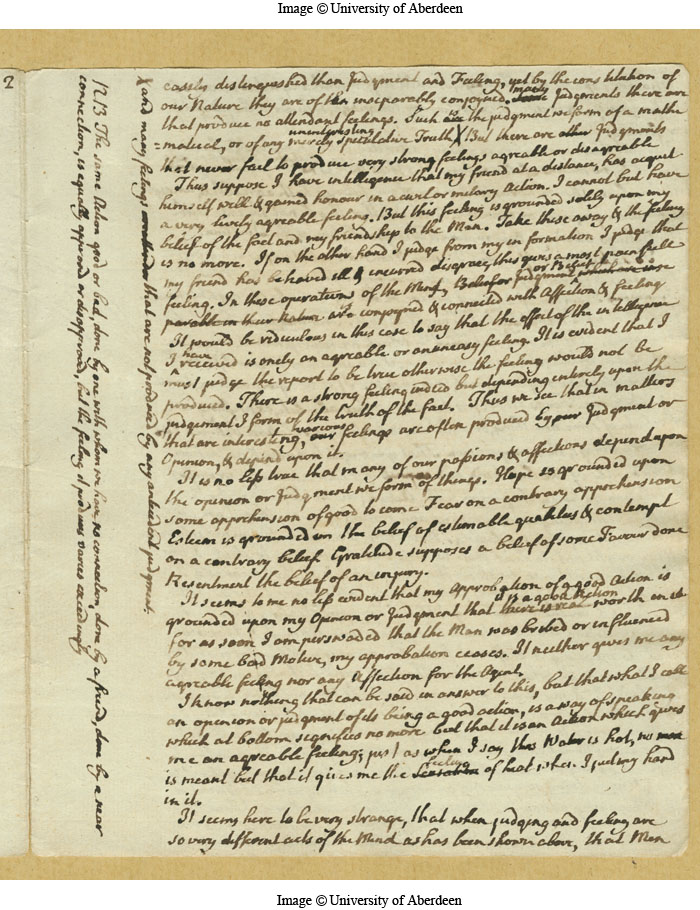 Image © University of Aberdeen
2
easily distinguished than Judgment and Feeling, yet by the constitution of
many
our Nature they are often inseparably conjoyned. Some Judgments there are
that produce no attendant feelings. Such are the judgment we form of a mathe
uninteresting
=matical, or of any merely speculative Truth X But there are other Judgments
that never fail to produce very strong feelings agreable or disagreable
Thus suppose I have intelligence that my friend at a distance, has acquit
himself well & gained honour in a civil or military Action. I cannot but have
a very lively agreable feeling. But this feeling is grounded solely upon my
belief of the fact and my friendship to the Man. Take these away & the feeling
is no more. If on the other hand I judge from my information I judge that
my friend has behaved ill & incurred disgrace, this gives a most painfull
or Belief
feeling. In these operations of the Mind, Judgment which are inse
parable in their Nature are conjoyned & connected with Affection & feeling
It would be ridiculous in this case to say that the effect of the intelligence
have
I received is only an agreable or an uneasy feeling. It is evident that I
must judge the report to be true otherwise the feeling would not be
produced. There is a strong feeling indeed but depending entirely upon the
judgement I form of the truth of the fact. Thus we see that in matters
various
that are interesting, our feelings are often produced by our Judgment or
Opinion, & depend upon it.
It is no less true that many of our passions & affections depend upon
the opinion or Judgment we form of things. Hope is grounded upon
some apprehension of good to come Fear on a contrary apprehension
Esteem is grounded on the belief of estimable qualities & contempt
on a contrary belief. Gratitude supposes a belief of some Favour done
Resentment the belief of an injury.
It seems to me no less evident that my Approbation of a good Action is
is a good Action
grounded upon my Opinion or Judgment that there is real worth in it
for as soon I am perswaded that the Man was bribed or influenced
by some bad Motive, my approbation ceases. It neither gives me any
agreable feeling nor any Affection for the Agent.
I know nothing that can be said in answer to this, but that what I call
an opinion or judgment of its being a good action, is a way of speaking
which at bottom signifies no more but that it is an Action which gives
me an agreable feeling; just as when I say this Water is hot, no more
feeling
is meant but that it gives me the Sensation of heat when I put my hand
in it.
It seems here to be very strange, that when judging and feeling are
so very different acts of the Mind as has been shown above, that Men
X and many feelings that are not produced by any antecedent judgment.
1213 The same Action good or bad, done by one with whom we have no connection, done by a friend, done by a near
connection, is equally approved or disapproved, but the feeling it produces varies exceedingly
Image © University of Aberdeen